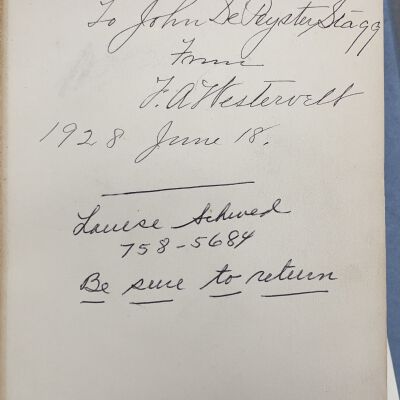 To John De Peyster Stagg
From
F. A Westervelt
1928 June 18.
Louise Schwed
758-5684
Be sure to return